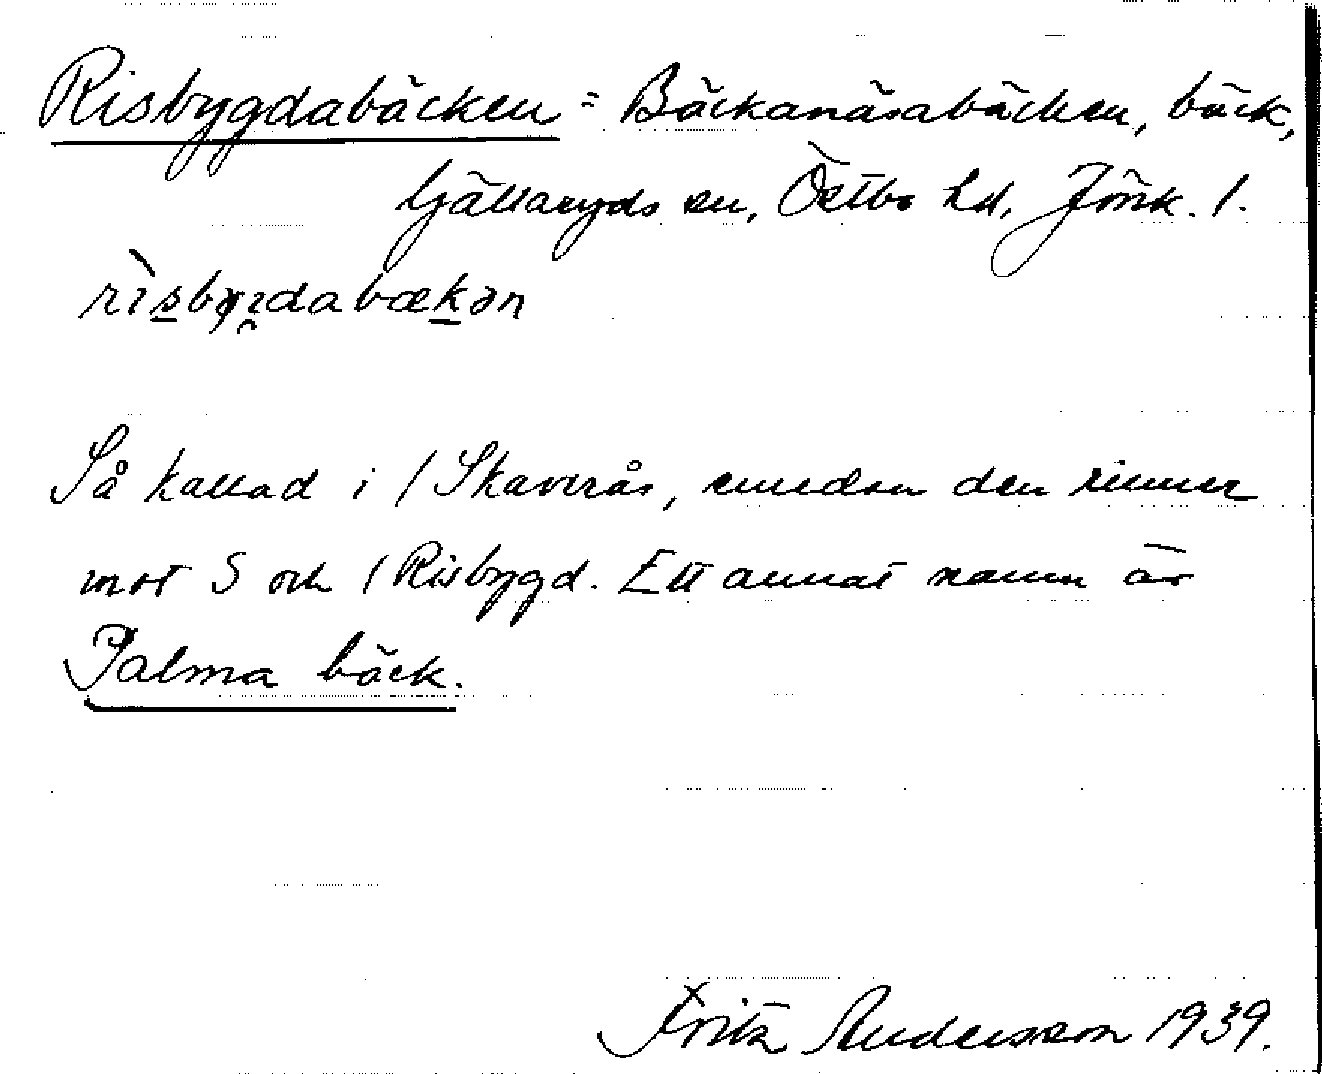 Risbygdabäcken = Bäckanäsabäcken, bäck,
Gällaryds sn, Östbo hd, Jönk. l.
rìsbyɪdabækən
Så kallad i / Skaverås, emedan den rinner
mot S och / Risbygd. Ett annat namn är
Palma bäck.
Fritz Andersson 1939.